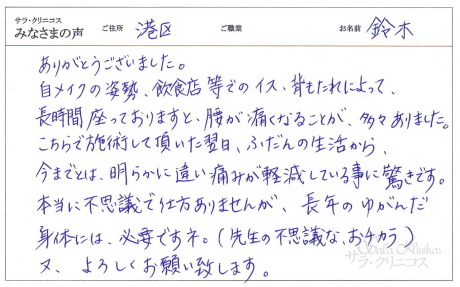 サラ・クリニコス
みなさまの声 ご住所 港区 ご職業 お名前 鈴木
ありがとうございました。
自メイクの姿勢、飲食店等でのイス、背もたれによって、
長時間座っておりますと、腰が痛くなることが、多々ありました。
こちらで施術して頂いた翌日、ふだんの生活から、
今までとは、明らかに違い痛みが軽減している事に驚きです。
本当に不思議で仕方ありませんが、長年のゆがんだ
身体には、必要ですネ。(先生の不思議な、おチカラ)
又、よろしくお願い致します。
Sala Klinikos
サラ・クリニコス